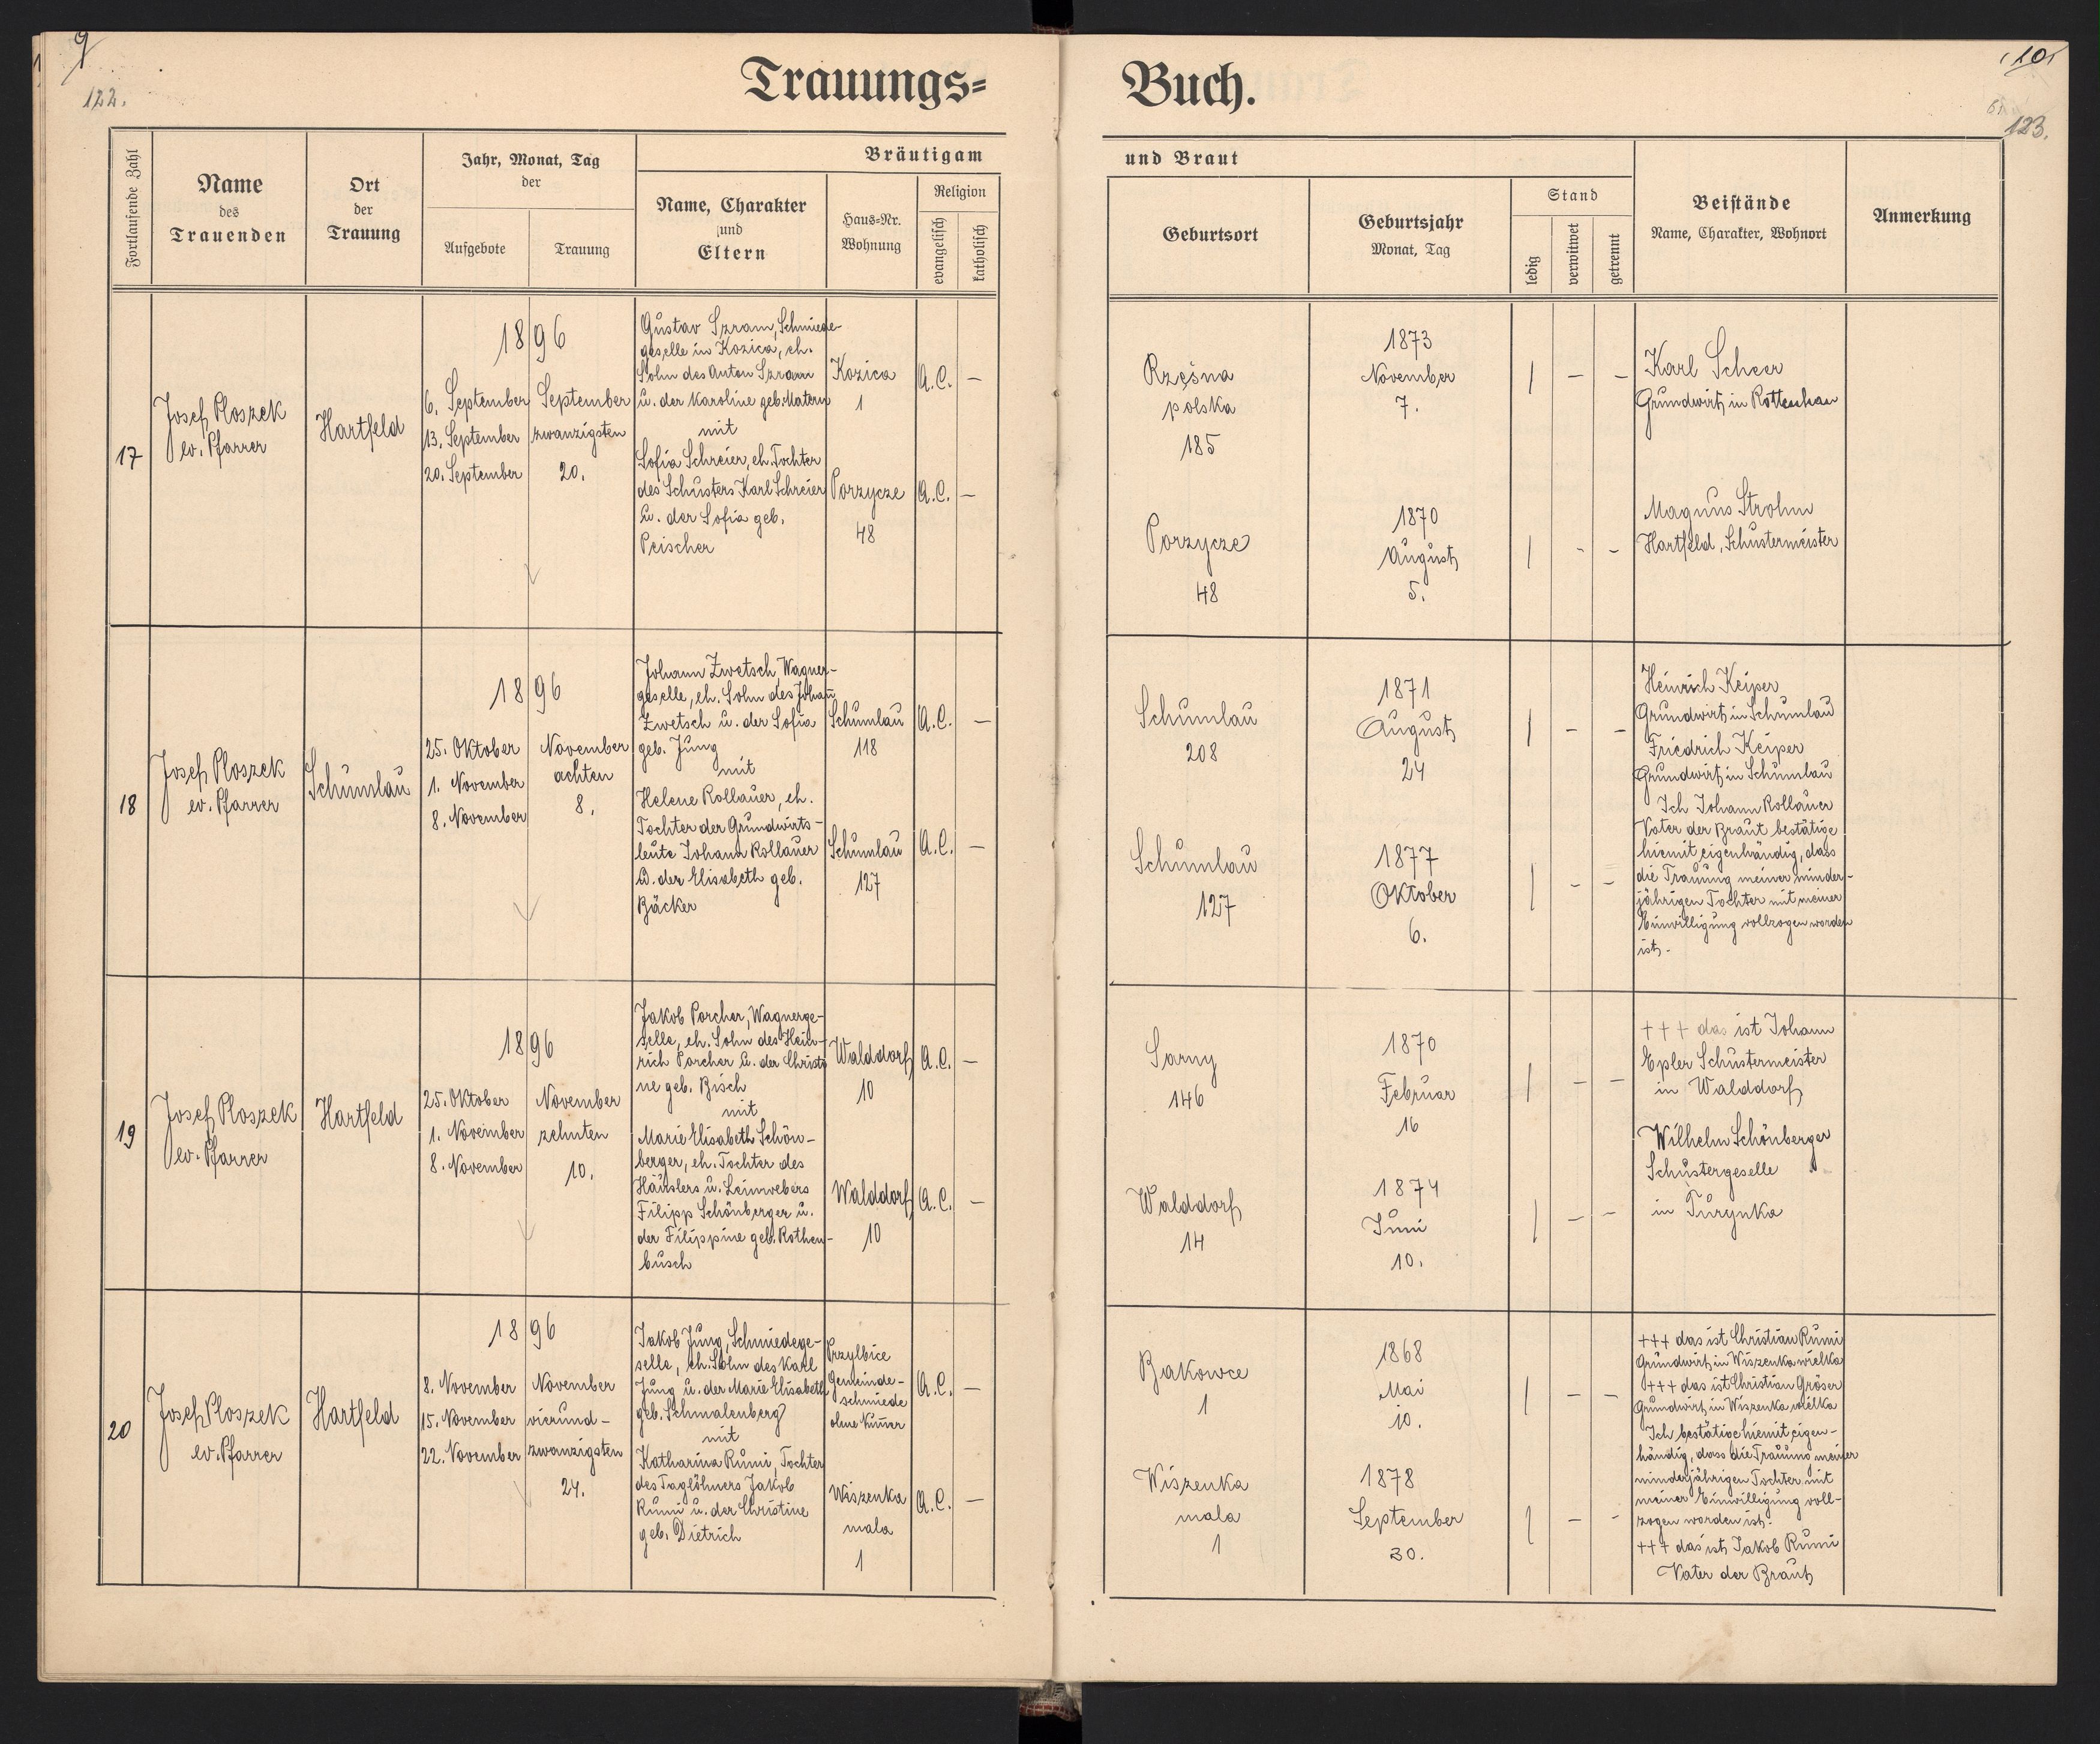 9
122.
Trauungs=
Buch.
10
123.
Fortlaufende Zahl
Name
des
Trauenden
Ort
der
Trauung
Jahr, Monat, Tag
der
Aufgebote
Trauung
Bräutigam
Name, Charakter
und
Eltern
Haus=Nr.
Wohnung
Religion
evangelisch
katholisch
und Braut
Geburtsort
Geburtsjahr
Monat, Tag
Stand
ledig
verwitwet
getrennt
Beistände
Name, Charakter, Wohnort
Anmerkung
17
Josef Ploszek
ev. Pfarrer
Hartfeld
1896
6. September
13. September
20. September
September
zwanzigsten
20.
Gustav Szram, Schmiede-
geselle in Kozica, eh.
Sohn des Anton Szram
u. der Karoline geb. Matern
mit
Sofia Schreier, eh. Tochter
des Schusters Karl Schreier
u. der Sofia geb.
Peischer
Kozica
1
Porzycze
48
A.C. –
A.C. –
Rzęśna
polska
185
Porzycze
48
1873
November
7.
1870
August
5.
| – –
| – –
Karl Scheer
Grundwirt in Rottenhan
Magnus Strohm
Hartfeld, Schustermeister
18
Josef Ploszek
ev. Pfarrer
Schumlau
1896
25. Oktober
1. November
8. November
November
achten
8.
Johann Zwetsch, Wagner-
geselle, eh. Sohn des Johann
Zwetsch u. der Sofia
geb. Jung
mit
Helene Rollauer, eh.
Tochter der Grundwirts-
leute Johann Rollauer
u. der Elisabeth geb.
Bäcker
Schumlau
118
Schumlau
127
A.C. –
A.C. –
Schumlau
208
Schumlau
127
1871
August
24
1877
Oktober
6.
| – –
| – –
Heinrich Keiper
Grundwirt in Schumlau
Friedrich Keiper
Grundwirt in Schumlau
Ich Johann Rollauer
Vater der Braut bestätige
hiemit eigenhändig, dass
die Trauung meiner minder-
jährigen Tochter mit meiner
Einwilligung vollzogen worden
ist.-
19
Josef Ploszek
ev. Pfarrer
Hartfeld
1896
25. Oktober
1. November
8. November
November
zehnten
10.
Jakob Porcher, Wagnerge-
selle, eh. Sohn des Hein-
rich Porcher u. der Christi
ne geb. Bisch
mit
Marie Elisabeth Schön-
berger, eh. Tochter des
Häuslers u. Leinwebers
Filipp Schönberger u.
der Filippine geb. Rothen-
busch
Walddorf
10
Walddorf
10
A.C. –
A.C. –
Sarny
146
Walddorf
14
1870
Februar
16
1874
Juni
10.
| – –
| – –
+++ das ist Johann
Epler Schustermeister
in Walddorf
Wilhelm Schönberger
Schustergeselle
in Turynka
20
Josef Ploszek
ev. Pfarrer
Hartfeld
1896
8. November
15. November
22. November
November
vierund-
zwanzigsten
24.
Jakob Jung, Schmiedege-
selle, eh. Sohn des Karl
Jung u. der Marie Elisabeth
geb. Schmalenberg
mit
Katharina Rumi, Tochter
des Taglöhners Jakob
Rumi u. der Christine
geb. Dietrich
Przylbice
Gemeinde-
schmiede
ohne Nummer
Wiszenka
mala
1
A.C. –
A.C. –
Bakowce
1
Wiszenka
mala
1
1868
Mai
10.
1878
September
30.
| – –
| – –
+++ das ist Christian Rumi
Grundwirt in Wiszenka wielka
+++ das ist Christian Gröser
Grundwirt in Wiszenka wielka
Ich bestätige hiemit eigen-
händig, dass die Trauung meiner
minderjährigen Tochter mit
meiner Einwilligung voll-
zogen worden ist.
+++ das ist Jakob Rumi
Vater der Braut